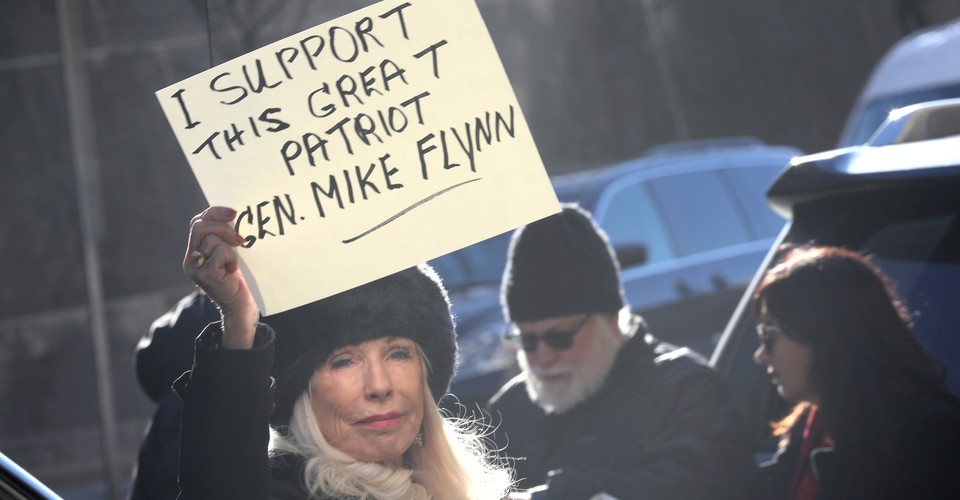 I SUPPORT
THIS GREAT
PATRIOT
GEN. MIKE FLYNN